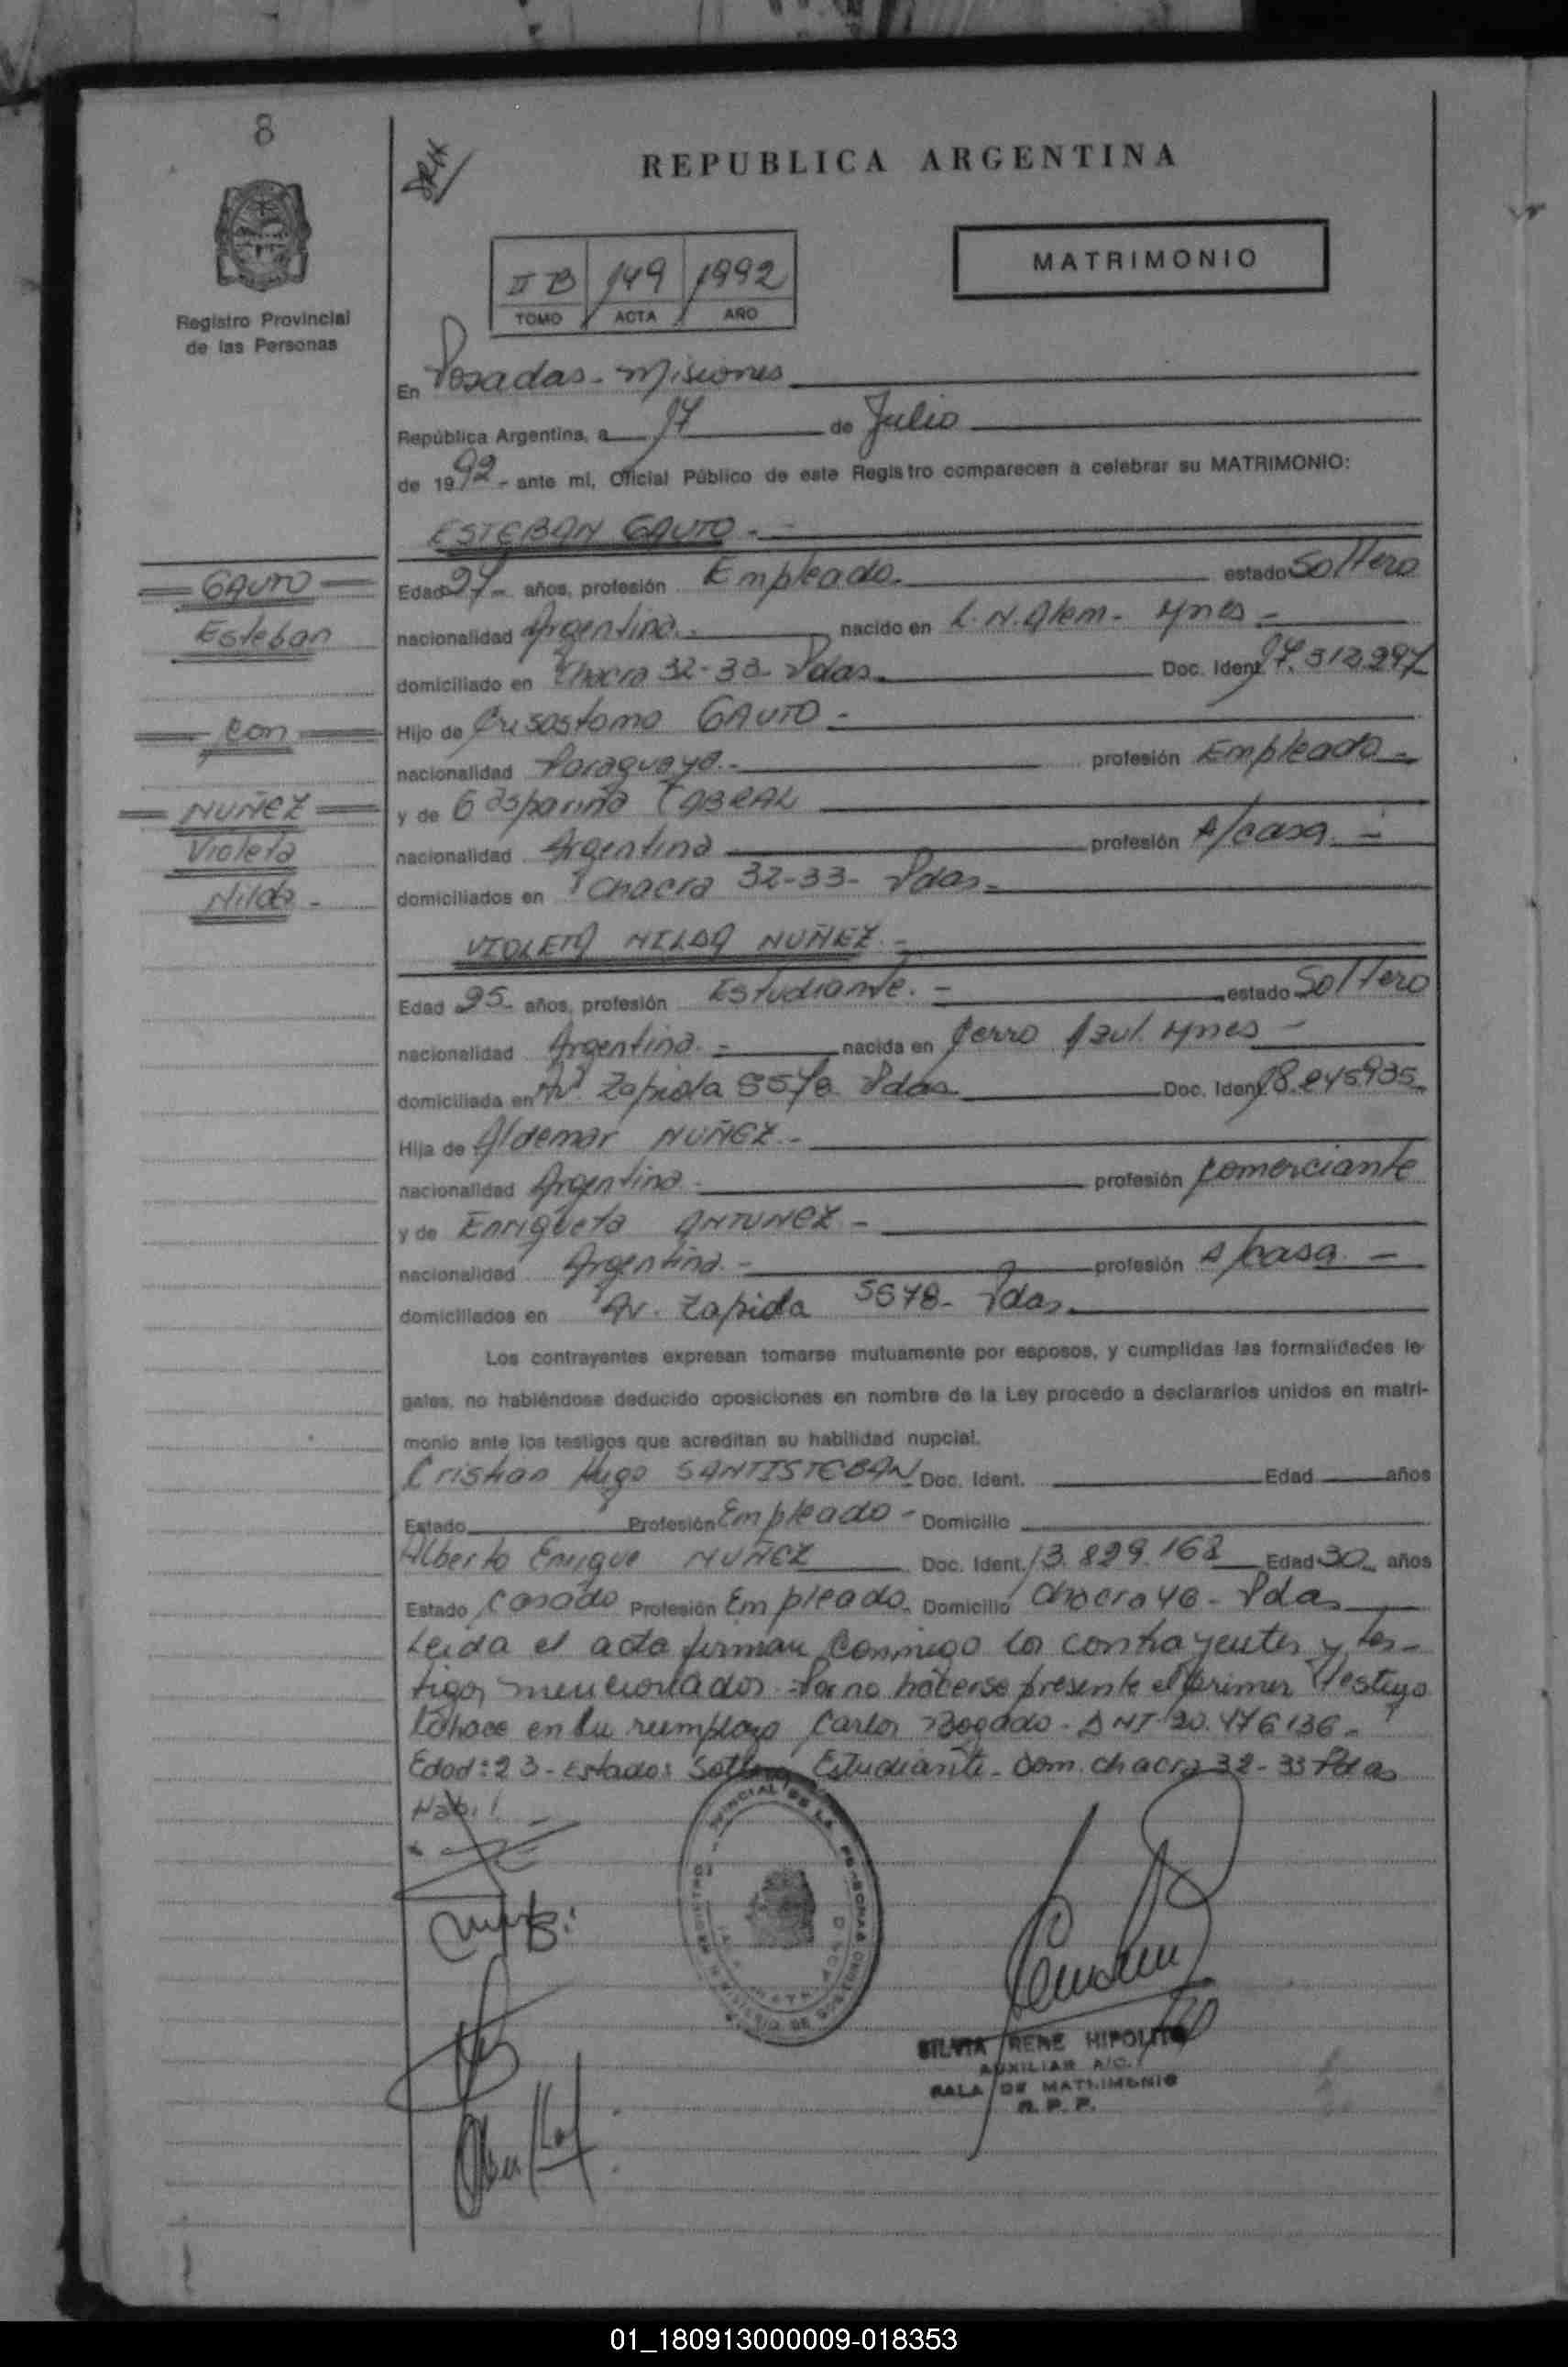 8
REPUBLICA ARGENTINA
MATRIMONIO
II B 149 1992
TOMO ACTA AÑO
Registro Provincial
de las Personas
En Posadas - Misiones
República Argentina, a 17 de Julio
de 1992 - ante mi, Oficial Público de este Registro comparecen a celebrar su MATRIMONIO:
ESTEBAN GAUTO. -
GAUTO
Esteban
con
NUÑEZ
Violeta
Nilda -
Edad 27 - años, profesión Empleado. estado Soltero
nacionalidad Argentina. - nacido en L. N. Alem - Mnes -
domiciliado en Chacra 32-33- Pdas. Doc. Ident. 17.312.297
Hijo de Crisostomo GAUTO -
nacionalidad Paraguaya. - profesión Empleado -
y de Gasparina CABRAL
nacionalidad Argentina profesión A/casa. -
domiciliados en Chacra 32-33- Pdas -
VIOLETA NILDA NUÑEZ. -
Edad 25 - años, profesión Estudiante. - estado Soltero
nacionalidad Argentina. - nacida en Cerro Azul. Mnes -
domiciliada en Av. Zapiola 5578 Pdas Doc. Ident. 18.245935
Hija de Aldemar NUÑEZ. -
nacionalidad Argentina - profesión Comerciante
y de Enriqueta ANTUNEZ -
nacionalidad Argentina. - profesión A/casa. -
domiciliados en Av. Zapiola 5578- Pdas.
Los contrayentes expresan tomarse mutuamente por esposos, y cumplidas las formalidades le-
gales, no habiéndose deducido oposiciones en nombre de la Ley procedo a declararlos unidos en matri-
monio ante los testigos que acreditan su habilidad nupcial.
Cristian Hugo SANTISTEBAN Doc. Ident. Edad años
Estado Profesión Empleado - Domicilio
Alberto Enrique NUÑEZ Doc. Ident. 13.829.168 Edad 30 años
Estado Casado Profesión Empleado. Domicilio Chacra 46 - Pdas
Leida el acta firman conmigo los contrayentes y tes-
tigos mencionados - Por no hacerse presente el primer testigo
lo hace en su reemplazo Carlos Bogado - DNI 20.476136 -
Edad: 23 - Estado: Soltero Estudiante - Dom. chacra 32-33 Pdas
SILVIA RENE HIPOLITO
AUXILIAR A/C.
SALA DE MATRIMONIO
R. P. P.
01_180913000009-018353